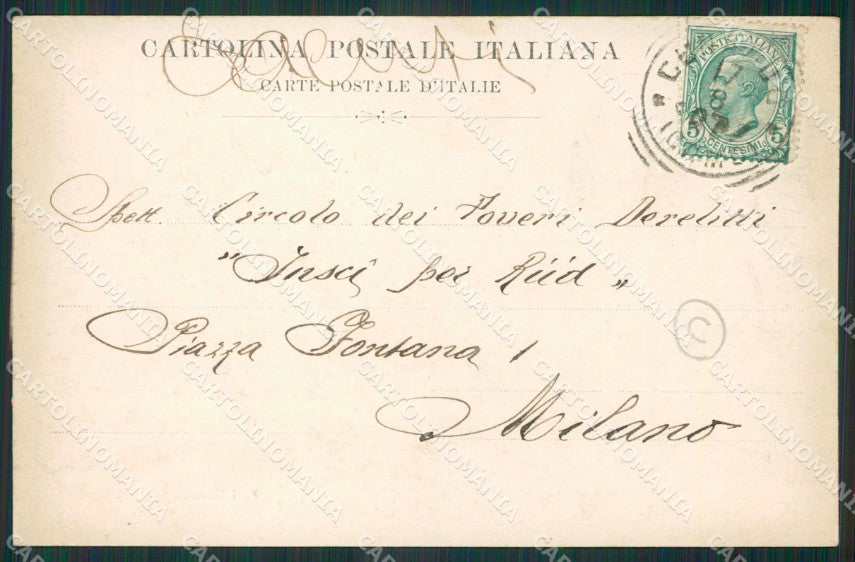 CARTOLINA POSTALE ITALIANA
CARTE POSTALE D'ITALIE
POSTE ITALIANE
5 CENTESIMI 5
17
8
07
Spett. Circolo dei Poveri Derelitti
"Insci per Riid"
Piazza Fontana 1
Milano
C
CARTOLINOMANIA